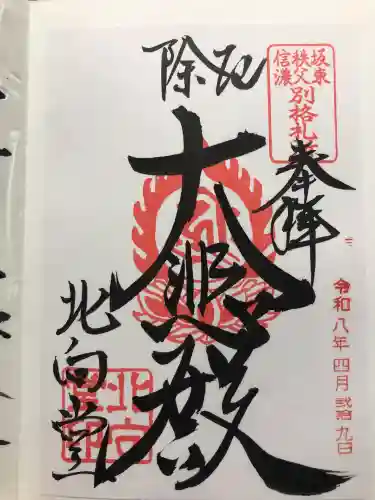 坂東
秩父
信濃
別格札所
奉拝
厄除
大悲殿
北向堂
令和八年四月弐拾九日